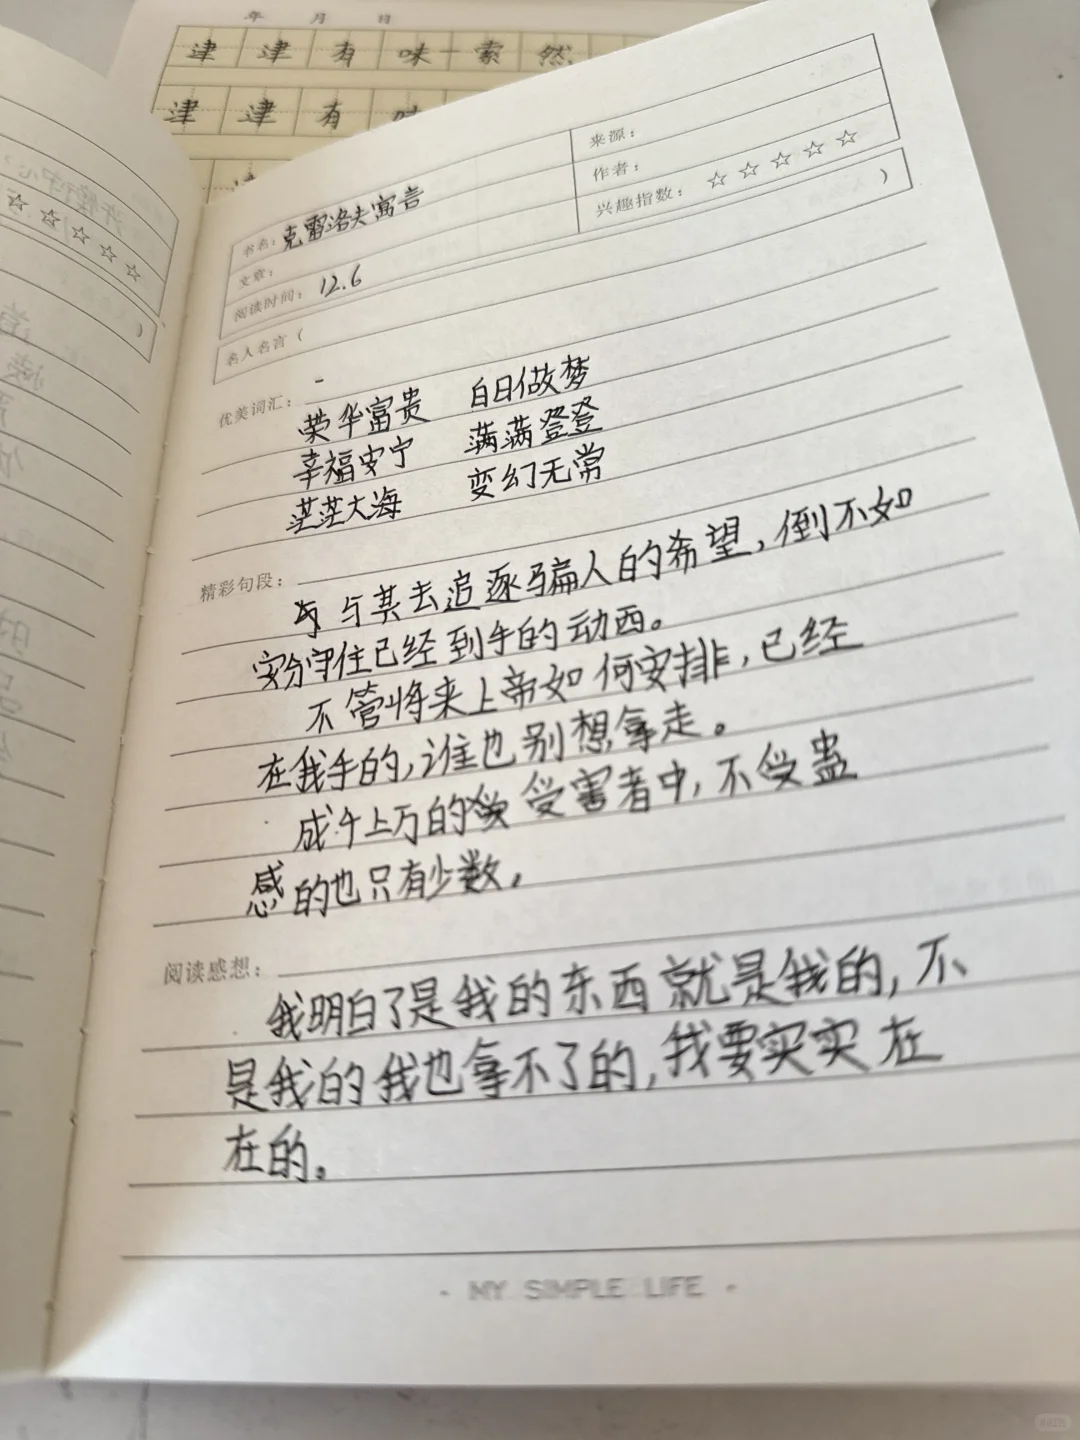 年 月 日
津 津 有 味 索 然
津 津 有 味
来源：
作者：
兴趣指数：☆ ☆ ☆ ☆ ☆
书名：克雷洛夫寓言
文章：
阅读时间：12.6
名人名言（ ）
优美词汇：
荣华富贵 白日做梦
幸福安宁 满满登登
茫茫大海 变幻无常
精彩句段：
与其去追逐骗人的希望，倒不如
安分守住已经到手的动西。
不管将来上帝如何安排，已经
在我手的，谁也别想拿走。
成千上万的受害者中，不受蛊
感的也只有少数。
阅读感想：
我明白了是我的东西就是我的，不
是我的我也拿不了的，我要实实在
在的。
· MY SIMPLE LIFE ·